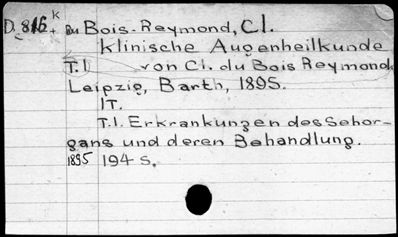 D. 816 k Du Bois-Reymond, Cl.
Klinische Augenheilkunde
T.1 von Cl. du Bois Reymond
Leipzig, Barth, 1895.
1T.
T.1. Erkrankungen des Sehor-
gans und deren Behandlung.
1895 194 S.